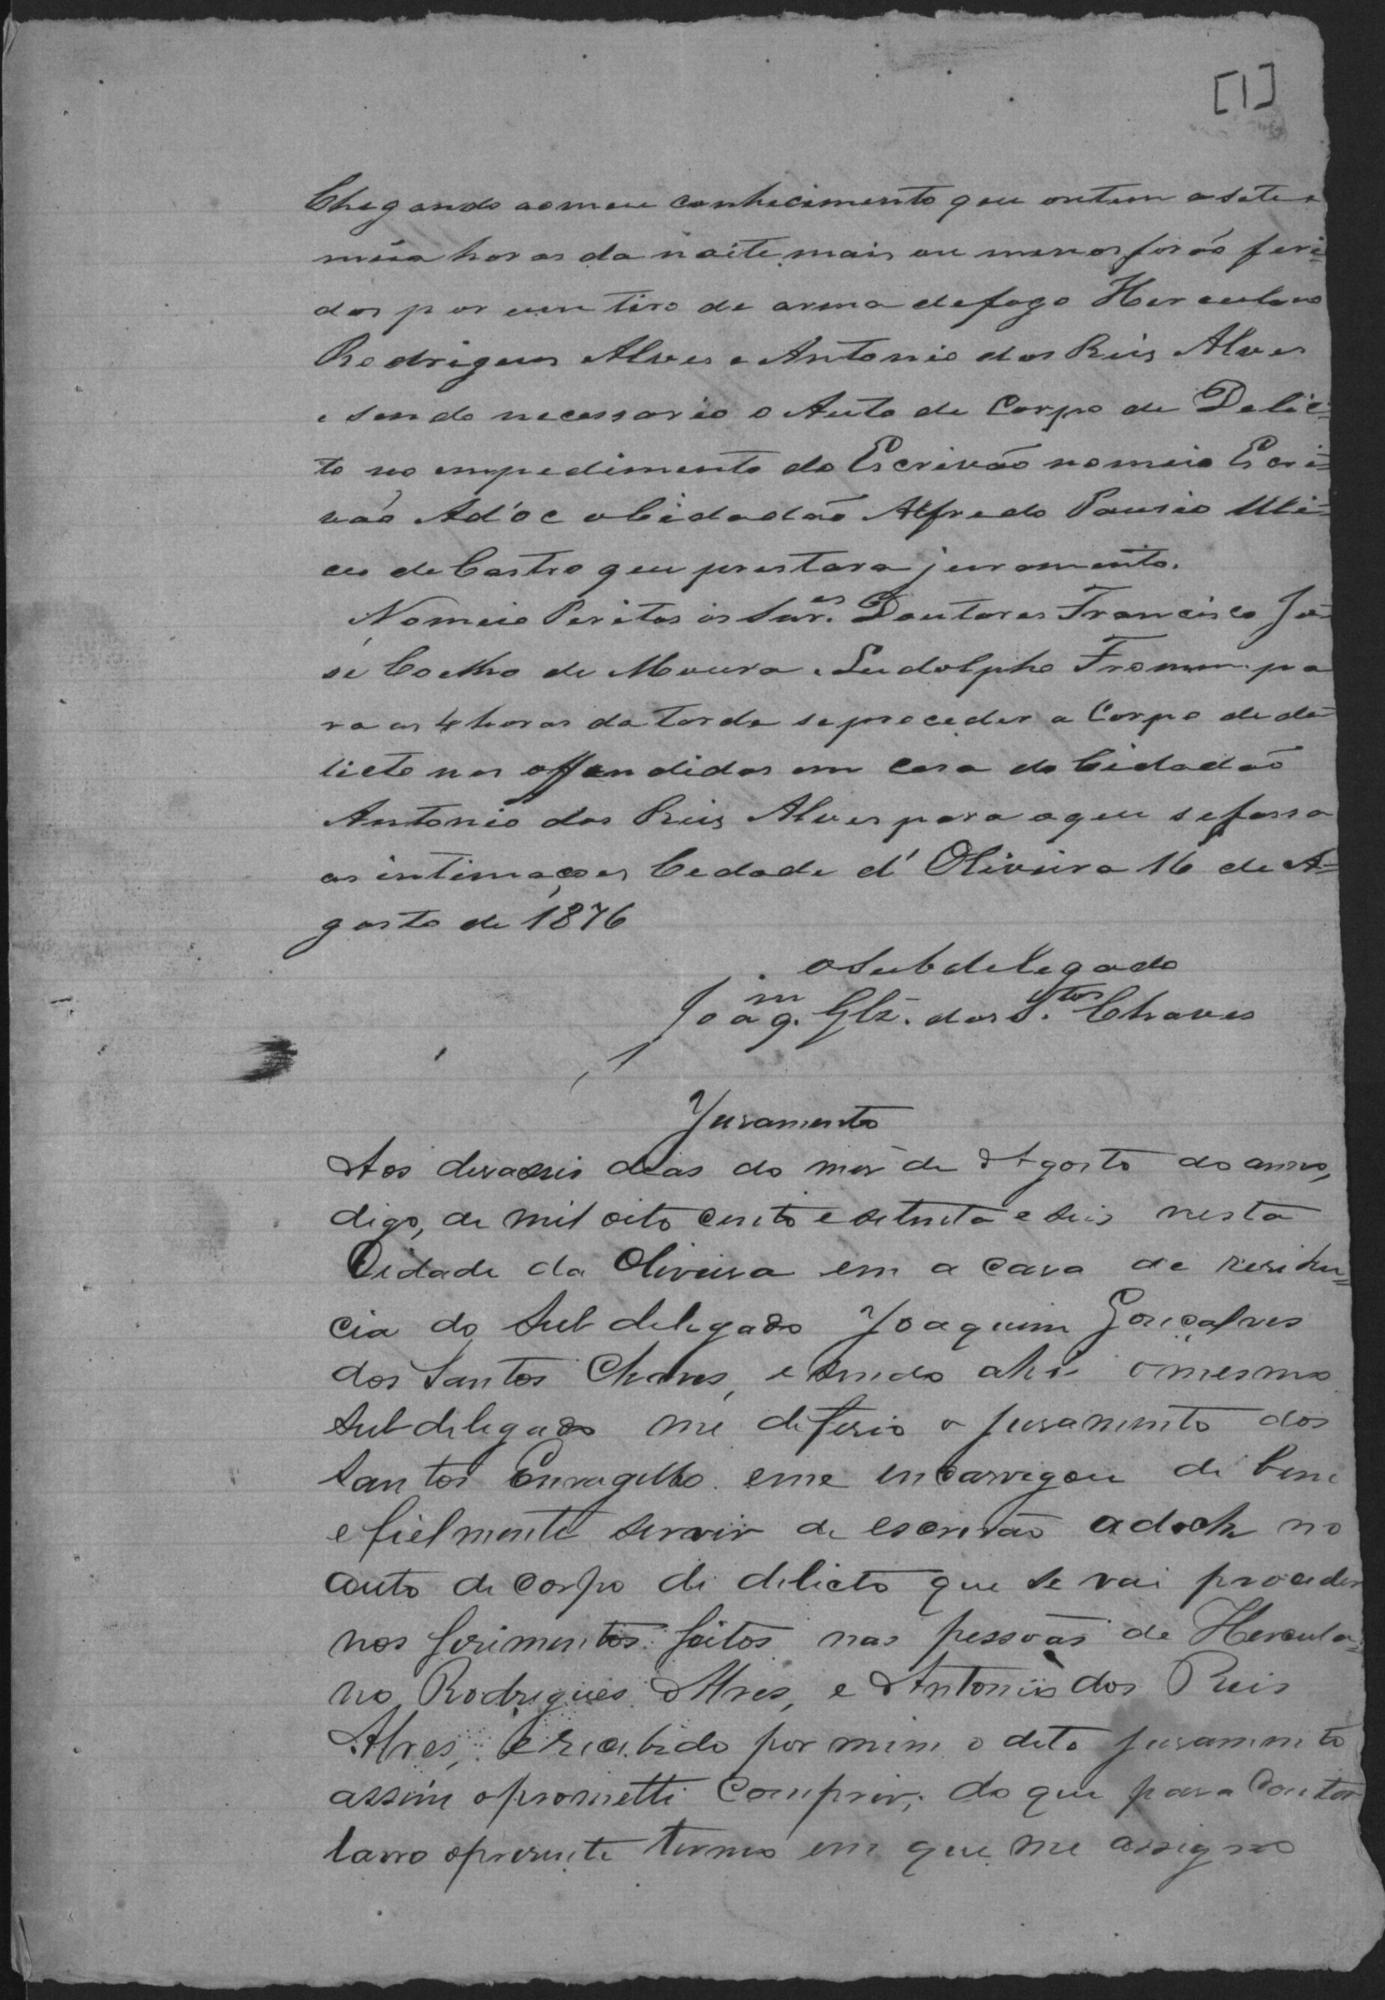 [1]
Chegando ao meu conhecimento que ontem as sete e
meia horas da noite mais ou menos forão feri-
dos por um tiro de arma de fogo Herculano
Rodrigues Alves e Antonio dos Reis Alves
e sendo necessario o Auto de Corpo de Delic-
to no empedimento do Escrivão nomeio Escri-
vão Ad'oc o Cidadão Alfredo
de Castro que prestara juramento.
Nomeio Peritos os Snr.es Doutores Francisco Jo-
sé Coelho de Moura e Ludolpho Fromm pa
ra as 4 horas da tarde se proceder a Corpo de de-
licto nos offendidos em casa do Cidadão
Antonio dos Reis Alves para o que se fassa
as intimações Cedade d' Oliveira 16 de A-
gosto de 1876
o Subdelegado
Joaq.m Glz. dos S.tos Chaves
Juramento
Aos deraseis dias do mes de Agosto do anno,
digo, de mil oito cento e setenta e seis nesta
Cidade da Oliveira em a casa de residen-
cia do Subdelegado Joaquim Gonçalves
dos Santos Chaves, e sendo ahi o mesmo
Subdelegado me deferio o juramento dos
Santos Envagelho e me encarregou de bem
e fielmente servir de escrivão adoch no
auto de corpo de delicto que se vai proceder
nos ferimentos feitos nas pessoas de Hercula-
no Rodrigues Alves, e Antonio dos Reis
Alves, e recebido por mim o dito juramento
assim o prometti comprir; do que para constar
lavro o presente termo em que me assigno